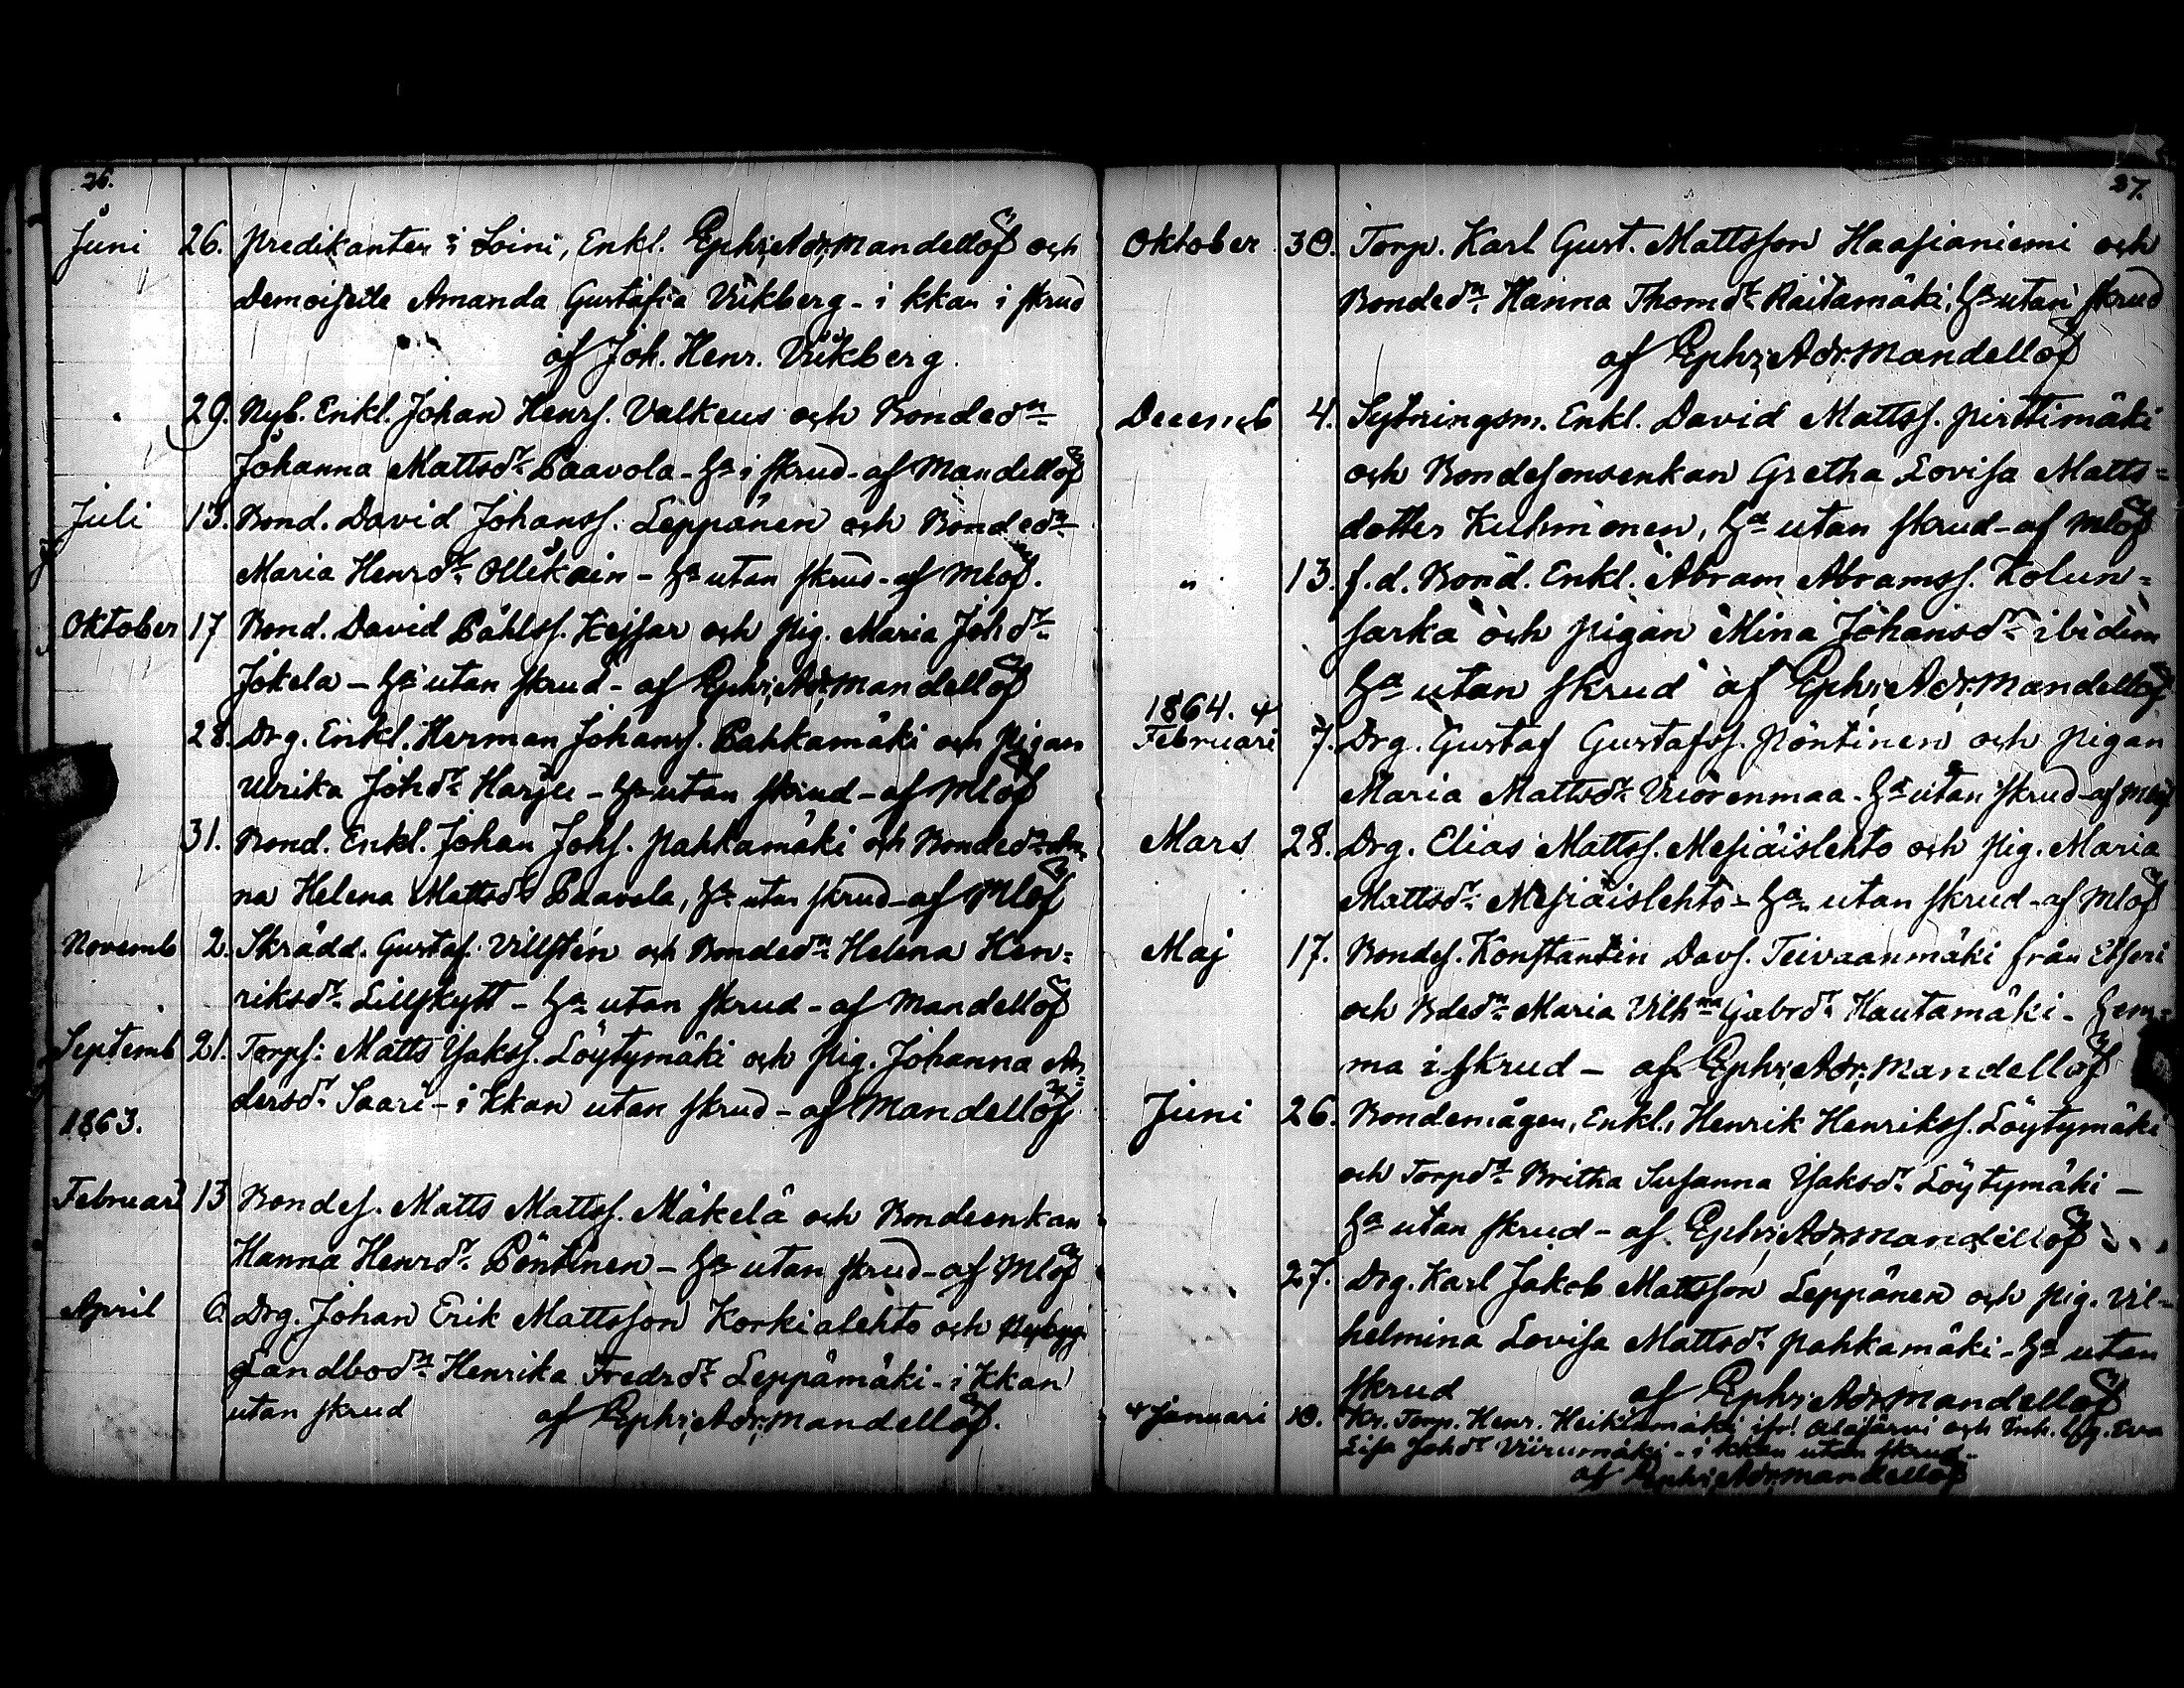 26.
Juni 26. Predikanten i Soini, Enkl. Ephr. Adr. Mandellöf och
Demoiselle Amanda Gustafia Vikberg - i kkan i skrud
af Joh. Henr. Vikberg
" 29. Nyb. Enkl. Johan Henrs. Valkeus och Bondedr
Johanna Mattsdr Paavola - Ha i skrud - af Mandellöf
Juli 13. Bond. David Johanss. Leppänen och Bondedr
Maria Henrdr Ollikain - Ha utan skrud - af Mlöf.
Oktober 17 Bond. David Påhlss. Kejsar och Pig. Maria Johdr
Jokela - Ha utan skrud - af Ephr. Adr. Mandellöf
28. Drg. Enkl. Herman Johanss. Pahkamäki och Pigan
Ulrika Johdr Harju - Ha utan skrud - af Mlöf
31. Bond. Enkl. Johan Johs. Pahkamäki och Bondedr An
na Helena Mattsdr Paavola, Ha utan skrud - af Mlöf
Novemb 2. Skrädd. Gustaf Villstén och Bondedr Helena Hen=
riksdr Lillskytt - Ha utan skrud - af Mandellöf
Septemb 21. Torps. Matts Isakss. Löytymäki och Pig. Johanna An=
dersdr Saari - i kkan utan skrud - af Mandellöf
1863.
Februari 13 Bondes. Matts Mattss. Mäkelä och Bondeenkan
Hanna Henrdr Pöntinen - Ha utan skrud - af Mlöf
April 6. Drg. Johan Erik Mattsson Korkialehto och
Landbodr Henrika Fredrdr Leppämäki - i kkan
utan skrud af Ephr. Adr. Mandellöf.
27.
Oktober 30. Torp. Karl Gust. Mattsson Haasianiemi och
Bondedr Hanna Thomdr Raitamäki, Ha utan skrud
af Ephr. Adr. Mandellöf
Decemb 4. Sytningsm. Enkl. David Mattss. Pirttimäki
och Bondesonsenkan Gretha Lovisa Matts=
dotter Kuhmonen, Ha utan skrud - af Mlöf
" 13. f.d. Bond. Enkl. Abram Abramss. Kolun=
sarka och Pigan Mina Johansdr ibidem
Ha utan skrud af Ephr. Adr. Mandellöf
1864.
Februari 7. Drg. Gustaf Gustafss. Pöntinen och Pigan
Maria Mattsdr Vuorenmaa - Ha utan skrud - af Mlöf
Mars 28. Drg. Elias Mattss. Mesiäislehto och Pig. Maria
Mattsdr Mesiäislehto - Ha utan skrud - af Mlöf
Maj 17. Bondes. Konstantin Davs. Teivaanmäki från Etseri
och Bdedr Maria Vilhma Gabrdr Hautamäki - hem=
ma i skrud - af Ephr. Adr. Mandellöf
Juni 26. Bondemågen, Enkl., Henrik Henrikss. Löytymäki
och Torpdr Britha Susanna Isaksdr Löytymäki -
Ha utan skrud - af Ephr. Adr. Mandellöf
27. Drg. Karl Jakob Mattsson Leppänen och Pig. Vil=
helmina Lovisa Mattsdr Pahkamäki - Ha utan
skrud af Ephr. Adr. Mandellöf
Januari 10. Kr. Torp. Henr. Heikkimäki ifr. Alajärvi och Inh. Eva
Lisa Johdr Viirumäki - i kkan utan skrud -
af Ephr. Adr. Mandellöf